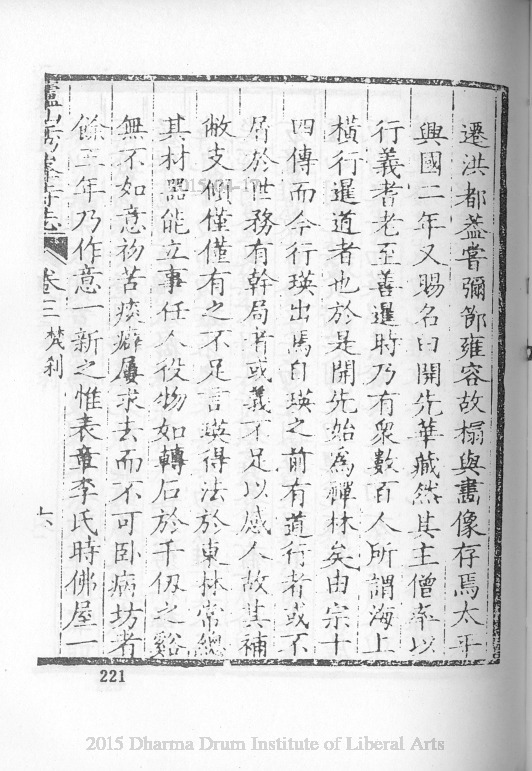 遷洪都葢嘗彌節雍容故榻與畫像存焉太平
興國二年又賜名曰開先華藏然其主僧率以
行義耆老至善暹時乃有衆數百人所謂海上
橫行暹道者也於是開先始爲禪林矣由宗十
四傳而今行瑛出焉自瑛之前有道行者或不
屑於世務有幹局者或義不足以感人故其補
敝支傾僅僅有之不足言瑛得法於東林常總
其材器能立事任人役物如轉石於千仭之谿
無不如意初苦痰癖屢求去而不可卧病坊者
餘三年乃作意一新之惟表章李氏時佛屋一
卷三 梵刹
六
221
2015 Dharma Drum Institute of Liberal Arts